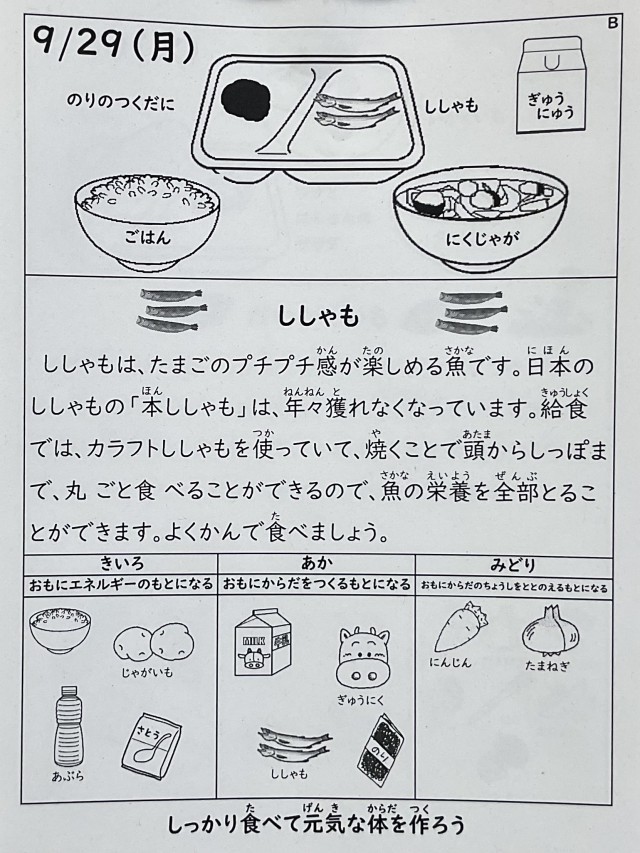 B
9/29(月)
のりのつくだに
ししゃも
ぎゅう
にゅう
ごはん
にくじゃが
ししゃも
ししゃもは、たまごのプチプチ感が楽しめる魚です。日本の
ししゃもの「本ししゃも」は、年々獲れなくなっています。給食
では、カラフトししゃもを使っていて、焼くことで頭からしっぽま
で、丸 ごと食 べることができるので、魚の栄養を全部とるこ
とができます。よくかんで食べましょう。
きいろ
あか
みどり
おもにエネルギーのもとになる
おもにからだをつくるもとになる
おもにからだのちょうしをととのえるもとになる
じゃがいも
MILK
牛乳
ぎゅうにく
にんじん
たまねぎ
あぶら
さとう
ししゃも
のり
しっかり食べて元気な体を作ろう